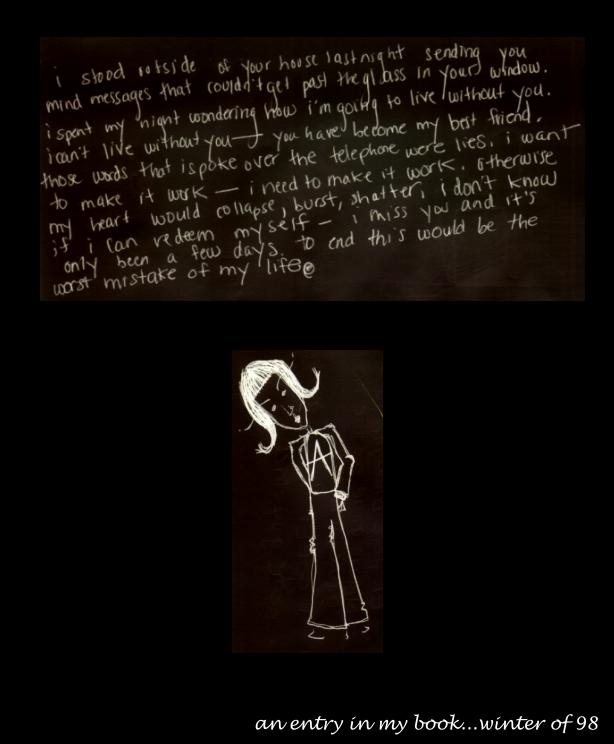 i stood outside of your house last night sending you
mind messages that couldn't get past the glass in your window.
i spent my night wondering how i'm going to live without you.
i can't live without you — you have become my best friend.
those words that i spoke over the telephone were lies. i want
to make it work — i need to make it work. otherwise
my heart would collapse, burst, shatter, i don't know
if i can redeem myself — i miss you and it's
only been a few days. to end this would be the
worst mistake of my life
A
an entry in my book...winter of 98